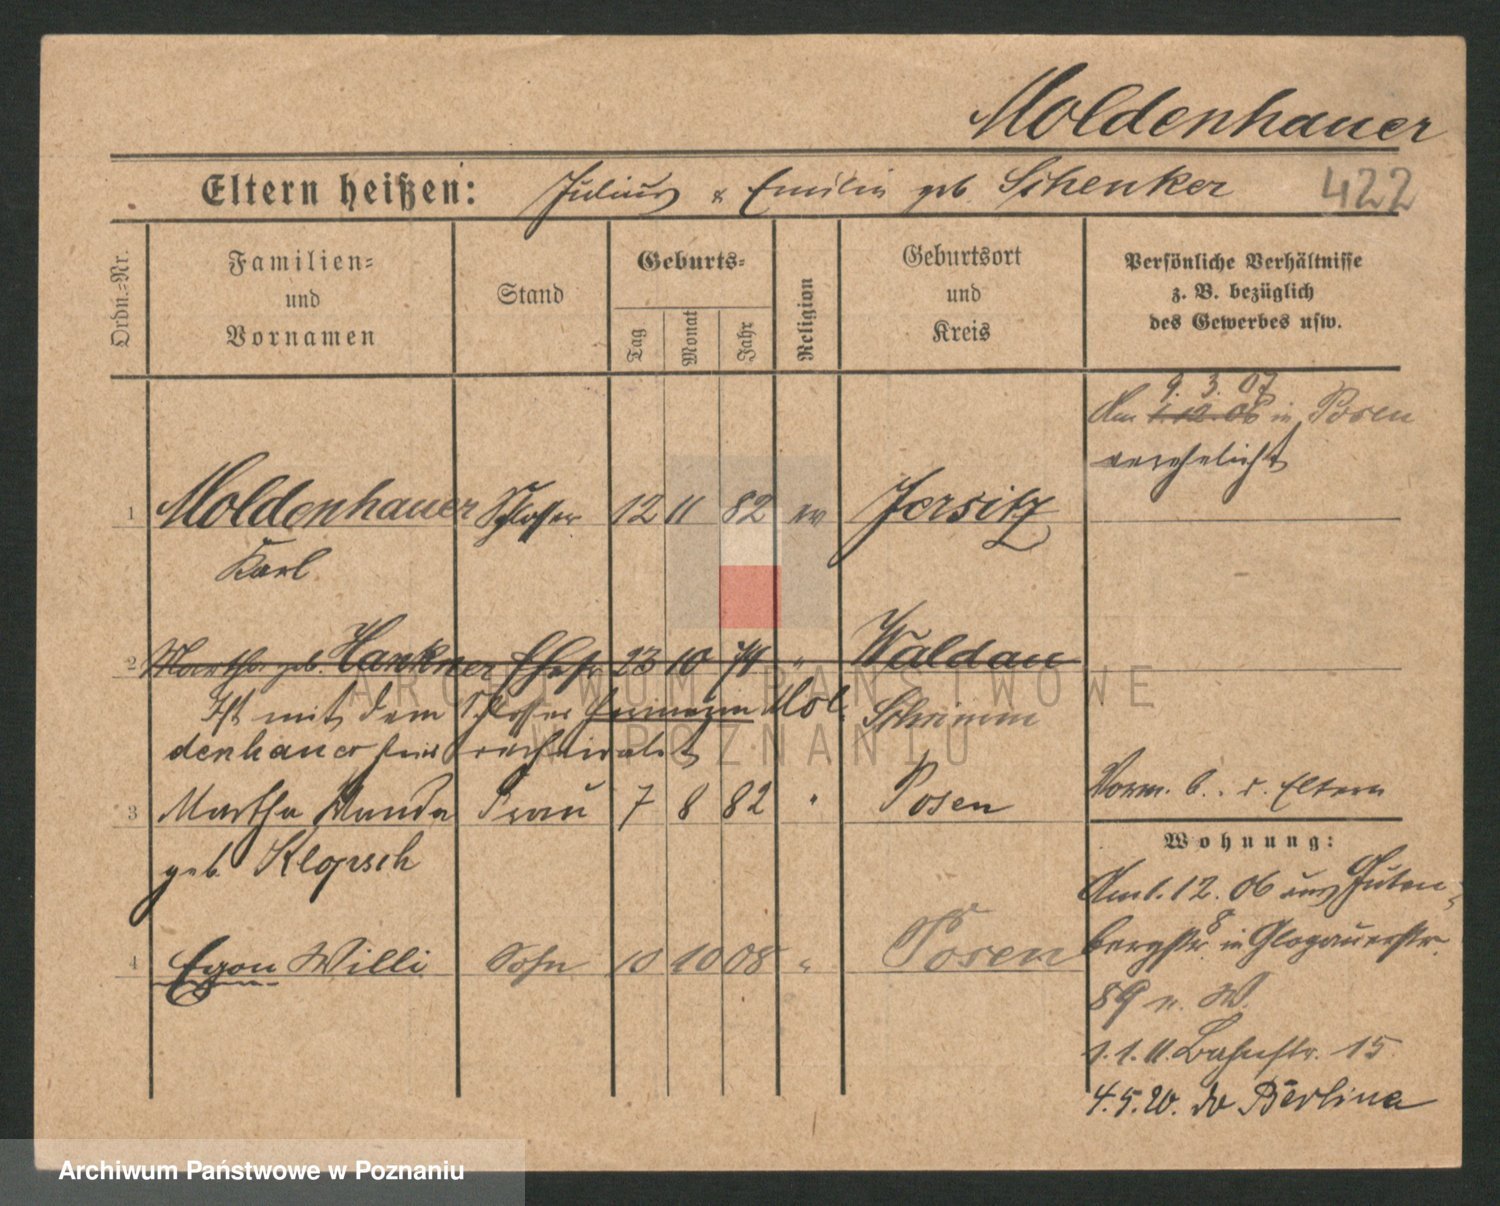 Moldenhauer
Eltern heißen: Julius & Emilie geb. Schenker 422
Ordn.-Nr.
Familien-
und
Vornamen
Stand
Geburts-
Tag
Monat
Jahr
Religion
Geburtsort
und
Kreis
Persönliche Verhältnisse
z. B. bezüglich
des Gewerbes usw.
9. 3. 07
Am 1.12.06 in Posen
verehelicht
1 Moldenhauer Schlosser 12 11 82 ev Jersitz
Karl
2 Martha geb. Hankner Ehefr 23 10 74 " Waldau
Ist mit dem Schlosser Hermann Mol- Schrimm
denhauer verheiratet
3 Martha Wanda Frau 7 8 82 " Posen
geb. Klopsch
Vorm. b. d. Eltern
Wohnung:
Am 1.12.06 aus Guten-
bergstr. 8 in Glogauerstr.
89 n. W.
4 Egon Willi Sohn 10 10 08 " Posen
1.1.11. Bahnstr. 15
4.5.20. do Berlina
ARCHIWUM PAŃSTWOWE
W POZNANIU
Archiwum Państwowe w Poznaniu